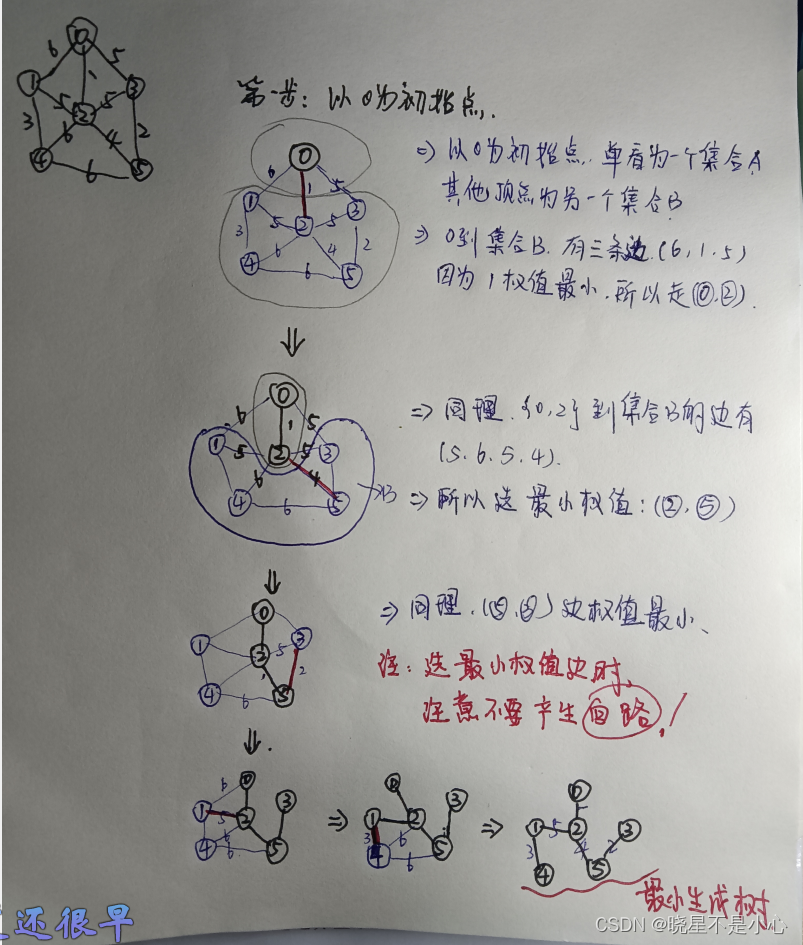 0
6
5
1
1
3
5
5
2
3
6
4
2
4
6
5
第一步：以0为初始点.
0
6
1
5
1
3
5
2
5
3
6
4
2
4
6
5
⇒ 以0为初始点. 单看为一个集合A
其他顶点为另一个集合B
⇒ 0到集合B. 有三条边.(6,1,5)
因为1权值最小.所以走(⓪,②).
⇓
0
6
1
5
1
5
2
5
3
6
4
4
6
5
→B
⇒ 同理.{0,2}到集合B的边有
(5.6.5.4).
⇒ 所以选最小权值:(②,⑤)
⇓
0
1
2
5
3
2
4
6
5
⇒ 同理.(⑤,③)边权值最小、
注：选最小权值边时,
注意不要产生回路!
⇓.
6
0
3
1
5
2
4
6
6
5
⇒
0
3
1
2
3
6
4
6
5
⇒
0
1
1
5
2
3
3
4
2
4
5
最小生成树
还很早
CSDN @晓星不是小心